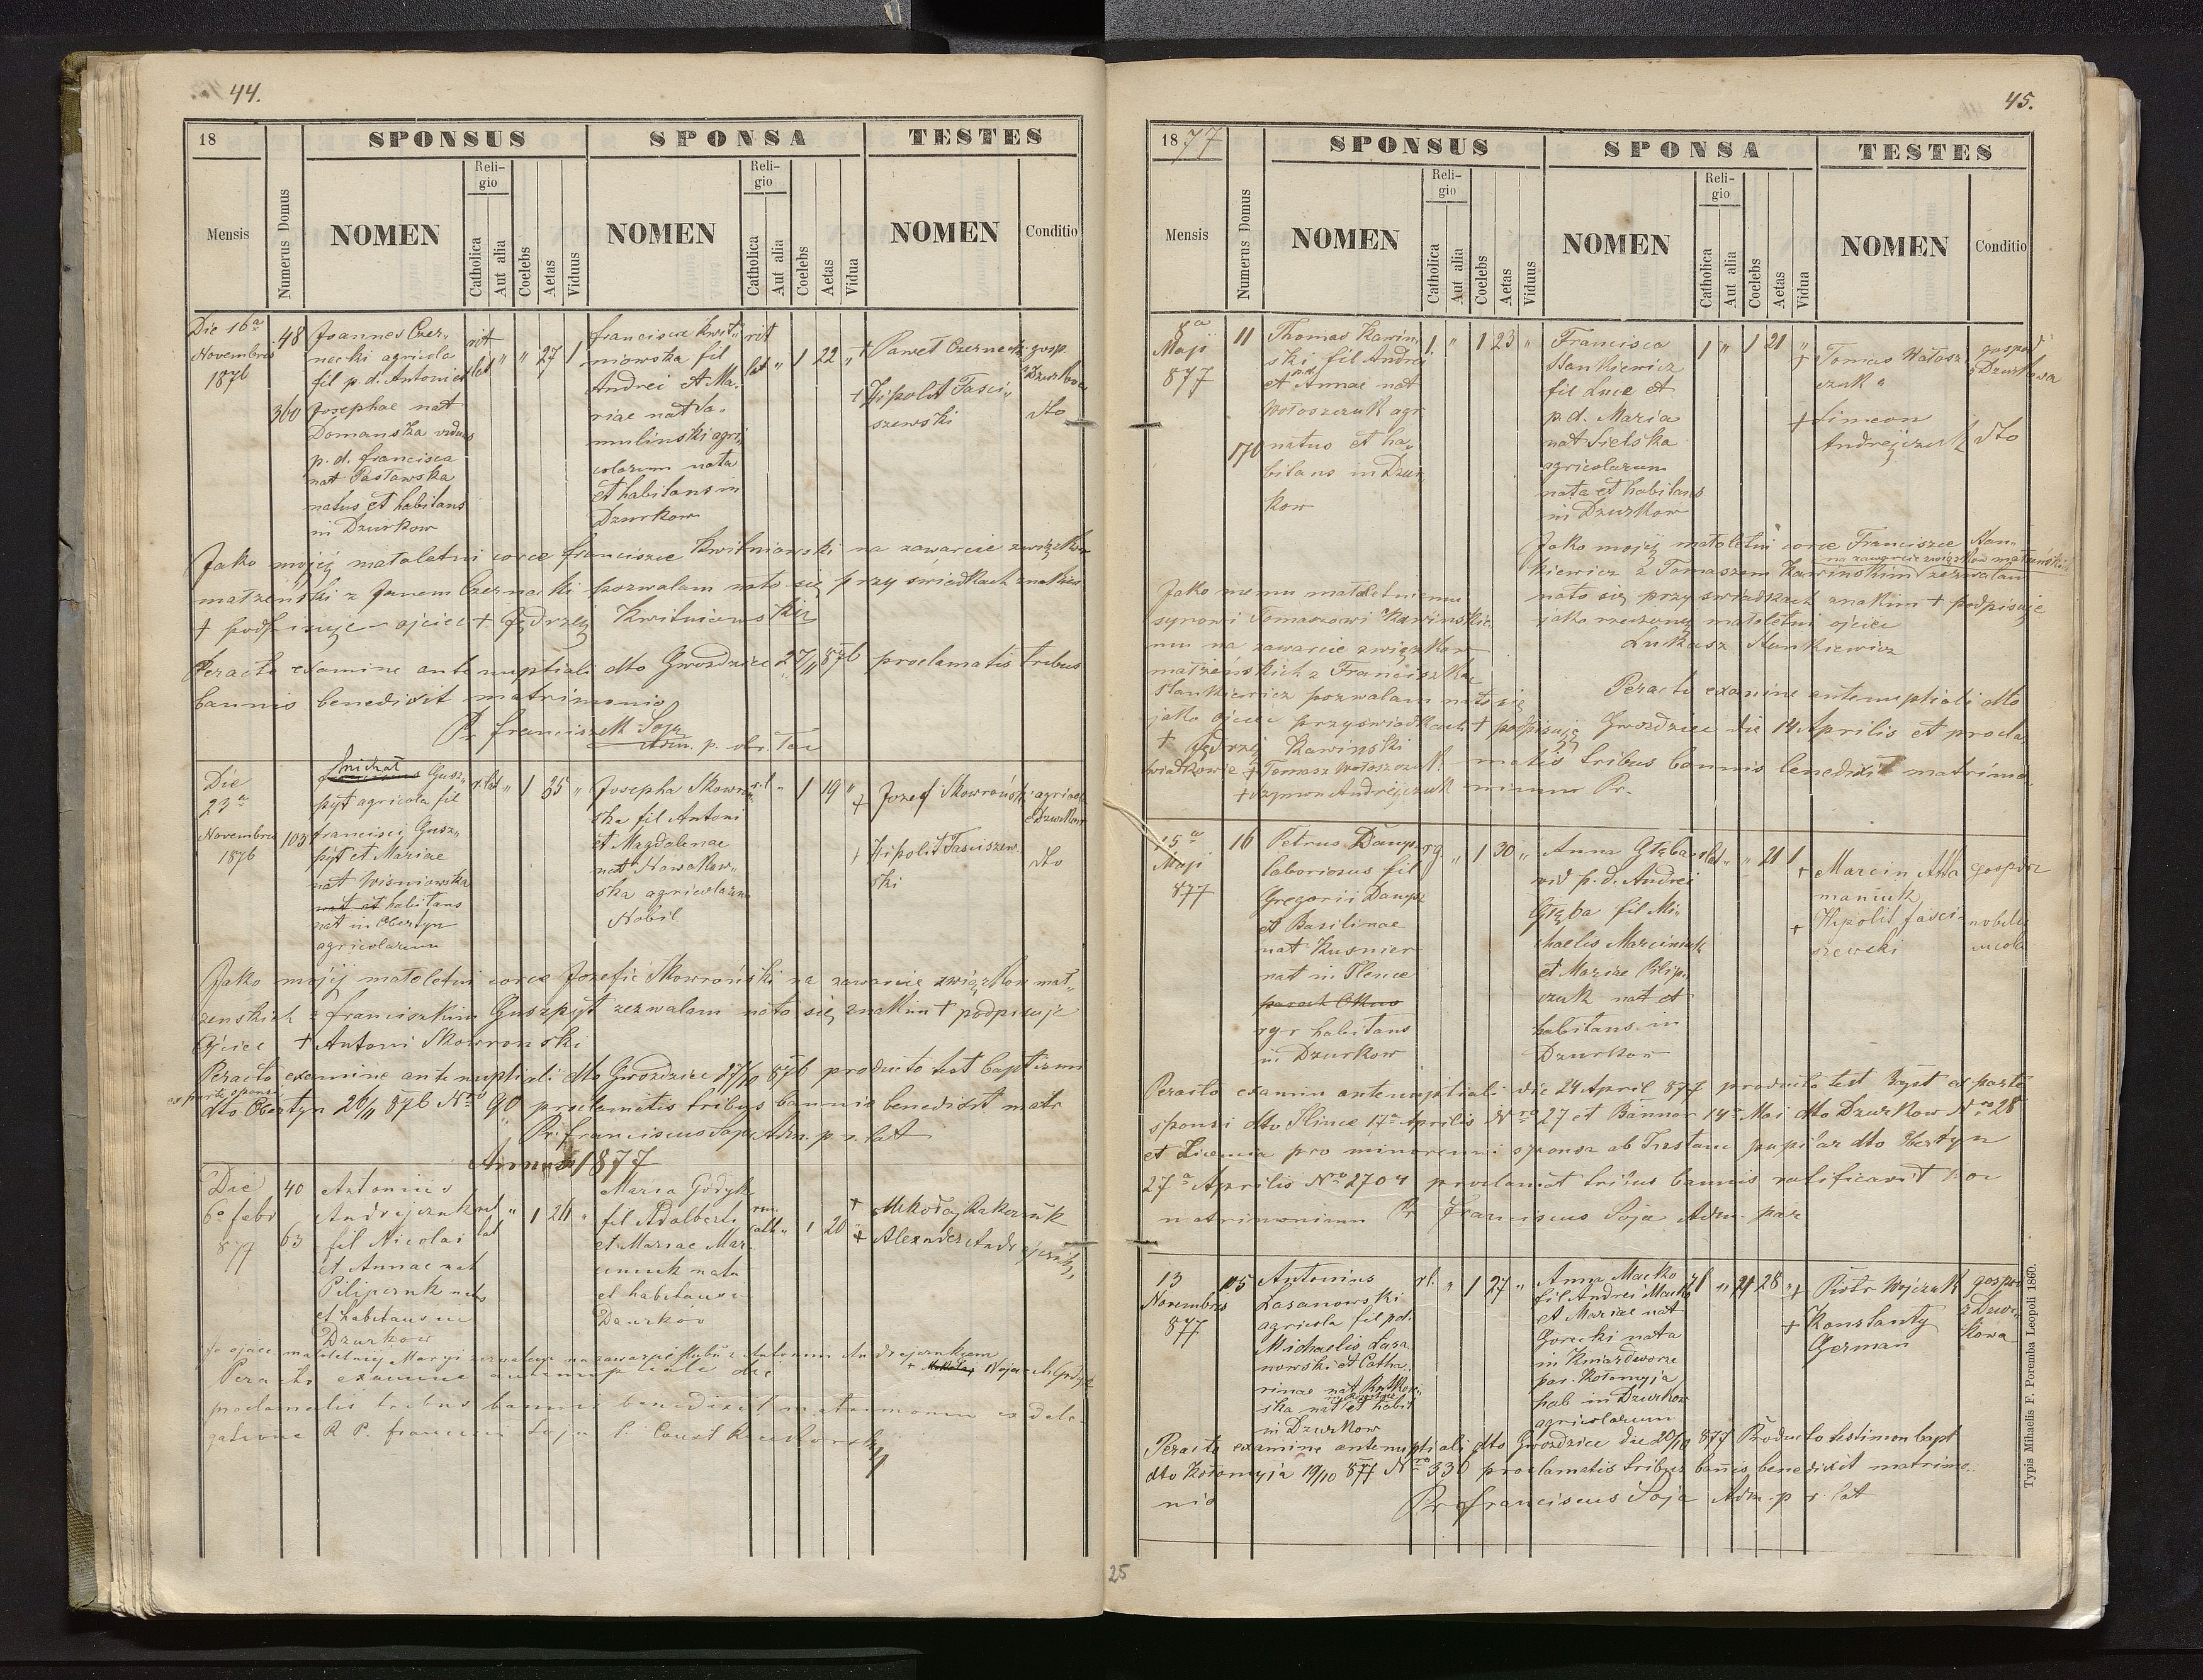 44.
18
SPONSUS
SPONSA
TESTES
Mensis
Numerus Domus
NOMEN
Religio
Catholica
Aut alia
Coelebs
Aetas
Viduus
NOMEN
Religio
Catholica
Aut alia
Coelebs
Aetas
Vidua
NOMEN
Conditio
Die 16a
Novembris
1876
48
360
Joannes Czer„
necki agricola
fil p. d. Antoni et
Josephae nat
Domanska viduus
p. d. francisca
nat Pastawska
natus et habitans
in Dzurkow
rit
lat
" " 27 1
francisca Kwit„
niowska fil
Andrei et Ma„
riae nat Sa„
mulinski agri„
colarum nata
et habitans in
Dzurkow
rit
lat
" 1 22 "
+ Paweł Czernecki
gosp.
z Dzurkowa
+ Hipolit Tasci„
szewski
dto
Jako mojej małoletni corce franciszce Kwitniowski na zawarcie związkow
małżeński z Janem Czernecki pozwalam nato się przy świadkach znakiem
+ podpisuje ojciec + Jędrzej Kwitniowski
Peracto examine antenuptiali dto Gwozdziec 27/11 876 proclamatis tribus
bannis benedixit matrimonio
Pr franciszek Soja
Adm. p. obr. Lac
Die
23a
Novembris
1876
103
michał Gusz„
pyt agricola fil
francisci Gusz„
pyt et Mariae
nat Wisniowska
nat et habitans
nat in Obertyn
agricolarum
r. lat " 1 35 "
Josepha Skowron„
ska fil Antoni
et Magdalenae
nat Nowakow„
ska agricolarum
Nobil
rl " 1 19 "
+ Jozef Skowroński
agricol
z Dzurkow
+ Hipolit Tasciszew„
ski
dto
Jako mojij małoletni corce Jozefie Skowroński na zawarcie związkow mał„
zenskich z franciszkim Guszpyt zezwalam nato się znakim + podpisuje
Ojciec + Antoni Skowronski
Peracto examine antenuptiali dto Gwozdziec 27/10 876 producto test baptismi
ex parte sponsi
dto Obertyn 20/11 876 Nro 90 proclamatis tribus bannis benedixit matr
Pr. franciscus Soja Adm. p. r. lat
Annus 1877
Die
6a febr
877
40
63
Antonius
Andrejczuk
fil Nicolai
et Annae nat
Pilipczuk natus
et habitans in
Dzurkow
rit
lat
" 1 26 "
Maria Godyk
fil Adalberti
et Mariae Mar„
ciniuk nata
et habitans in
Dzurków
rom.
cath " 1 20 "
+ Mikołaj Rakoczuk
+ Alexander Andrejczuk
Ja ojciec małoletniej Maryi zezwalam na zawarcie slubu z Antonim Andrejczukiem
Peracto examine antenuptiali die
proclamatis tribus bannis benedixit matrimonium ex dele„
gatione R. P. francisci Soja
45.
1877
SPONSUS
SPONSA
TESTES
Mensis
Numerus Domus
NOMEN
Religio
Catholica
Aut alia
Coelebs
Aetas
Viduus
NOMEN
Religio
Catholica
Aut alia
Coelebs
Aetas
Vidua
NOMEN
Conditio
8a
Maji
877
11
170
Thomas Kawin„
ski fil Andrei
et Annae nat
Wołoszczuk agr
natus et ha„
bitans in Dzur„
kow
1 " 1 23 "
Francisca
Stankiewicz
fil Luce et
p. d. Maria
nat Sielska
agricolarum
nata et habitans
in Dzurkow
1 " 1 21 "
+ Tomas Wołosz
czuk
gospod
z Dzurkowa
+ Simeon
Andrejczuk
dto
Jako mojij małoletni corce Franciszce Stan„
kiewicz z Tomaszem Kawinskim zezwalam
na zawarcie związkow małżeński
nato się przy świadkach znakim + podpisuje
jako rzeczonej małoletni ojciec
Łukasz Stankiewicz
Jako memu małoletniemu
synowi Tomaszowi Kawinskie„
mu na zawarcie związkow
małżeńskich z Franciszką
Stankiewicz pozwalam nato się
jako ojciec przy świadkach + podpisuję
+ Jędrzej Kawinski
świadkowie + Tomasz Wołoszczuk
+ Szymon Andrejczuk
Peracto examine antenuptiali dto
Gwozdziec die 14 Aprilis et procla„
matis tribus bannis benedixit matrimo„
nium Pr.
15a
Maji
877
16
Petrus Daupe
laboriosus fil
Gregorii Daupe
et Basilinae
nat Kusnier
nat in Hlince
rgr habitans
in Dzurkow
rg " 1 30 "
Anna Głęba
vid p. d. Andrei
Głęba fil Mi„
chaelis Marciniuk
et Mariae Pilip„
czuk nat et
habitans in
Dzurkow
r lat " " 21 1
+ Marcin Ata
maniuk
gospodz
+ Hipolit fasci„
szewski
Peracto examin antenuptiali die 24 April 877 producto test bapt ex parte
sponsi dto Hlince 17a Aprilis Nro 27 et Bannor 14a Mai dto Dzurkow Nro 28
et Licencia pro minorenni sponsa ab Instanc pupilar dto Obertyn
27a Aprilis Nro 2704 proclamat tribus bannis ratificavit hoc
matrimonium Pr Franciscus Soja Adm. par
13
Novembris
877
105
Antonius
Lasanowski
agricola fil pd.
Michaelis Lasa
nowski et Catha„
rinae nat Kutkow„
ska nat et habit
in Dzurkow
rl. " 1 27 "
Anna Macko
fil Andrei Macko
et Mariae nat
Gorecki nata
in Kniazdworze
par. Kołomyja
hab in Dzurkow
agricolarum
rl " 1 28 "
+ Piotr Wojczuk
+ Konstanty
German
gospo
z Dzur„
kowa
Peracto examine antenuptiali dto Gwozdziec die 20/10 877 Producto testimon bapt
dto Kołomyja 19/10 877 Nro 336 proclamatis tribus bannis benedixit matrimo„
nio
Pr franciscus Soja Adm. p r. lat
Typis Mihaelis F. Poremba Leopoli 1860.
25